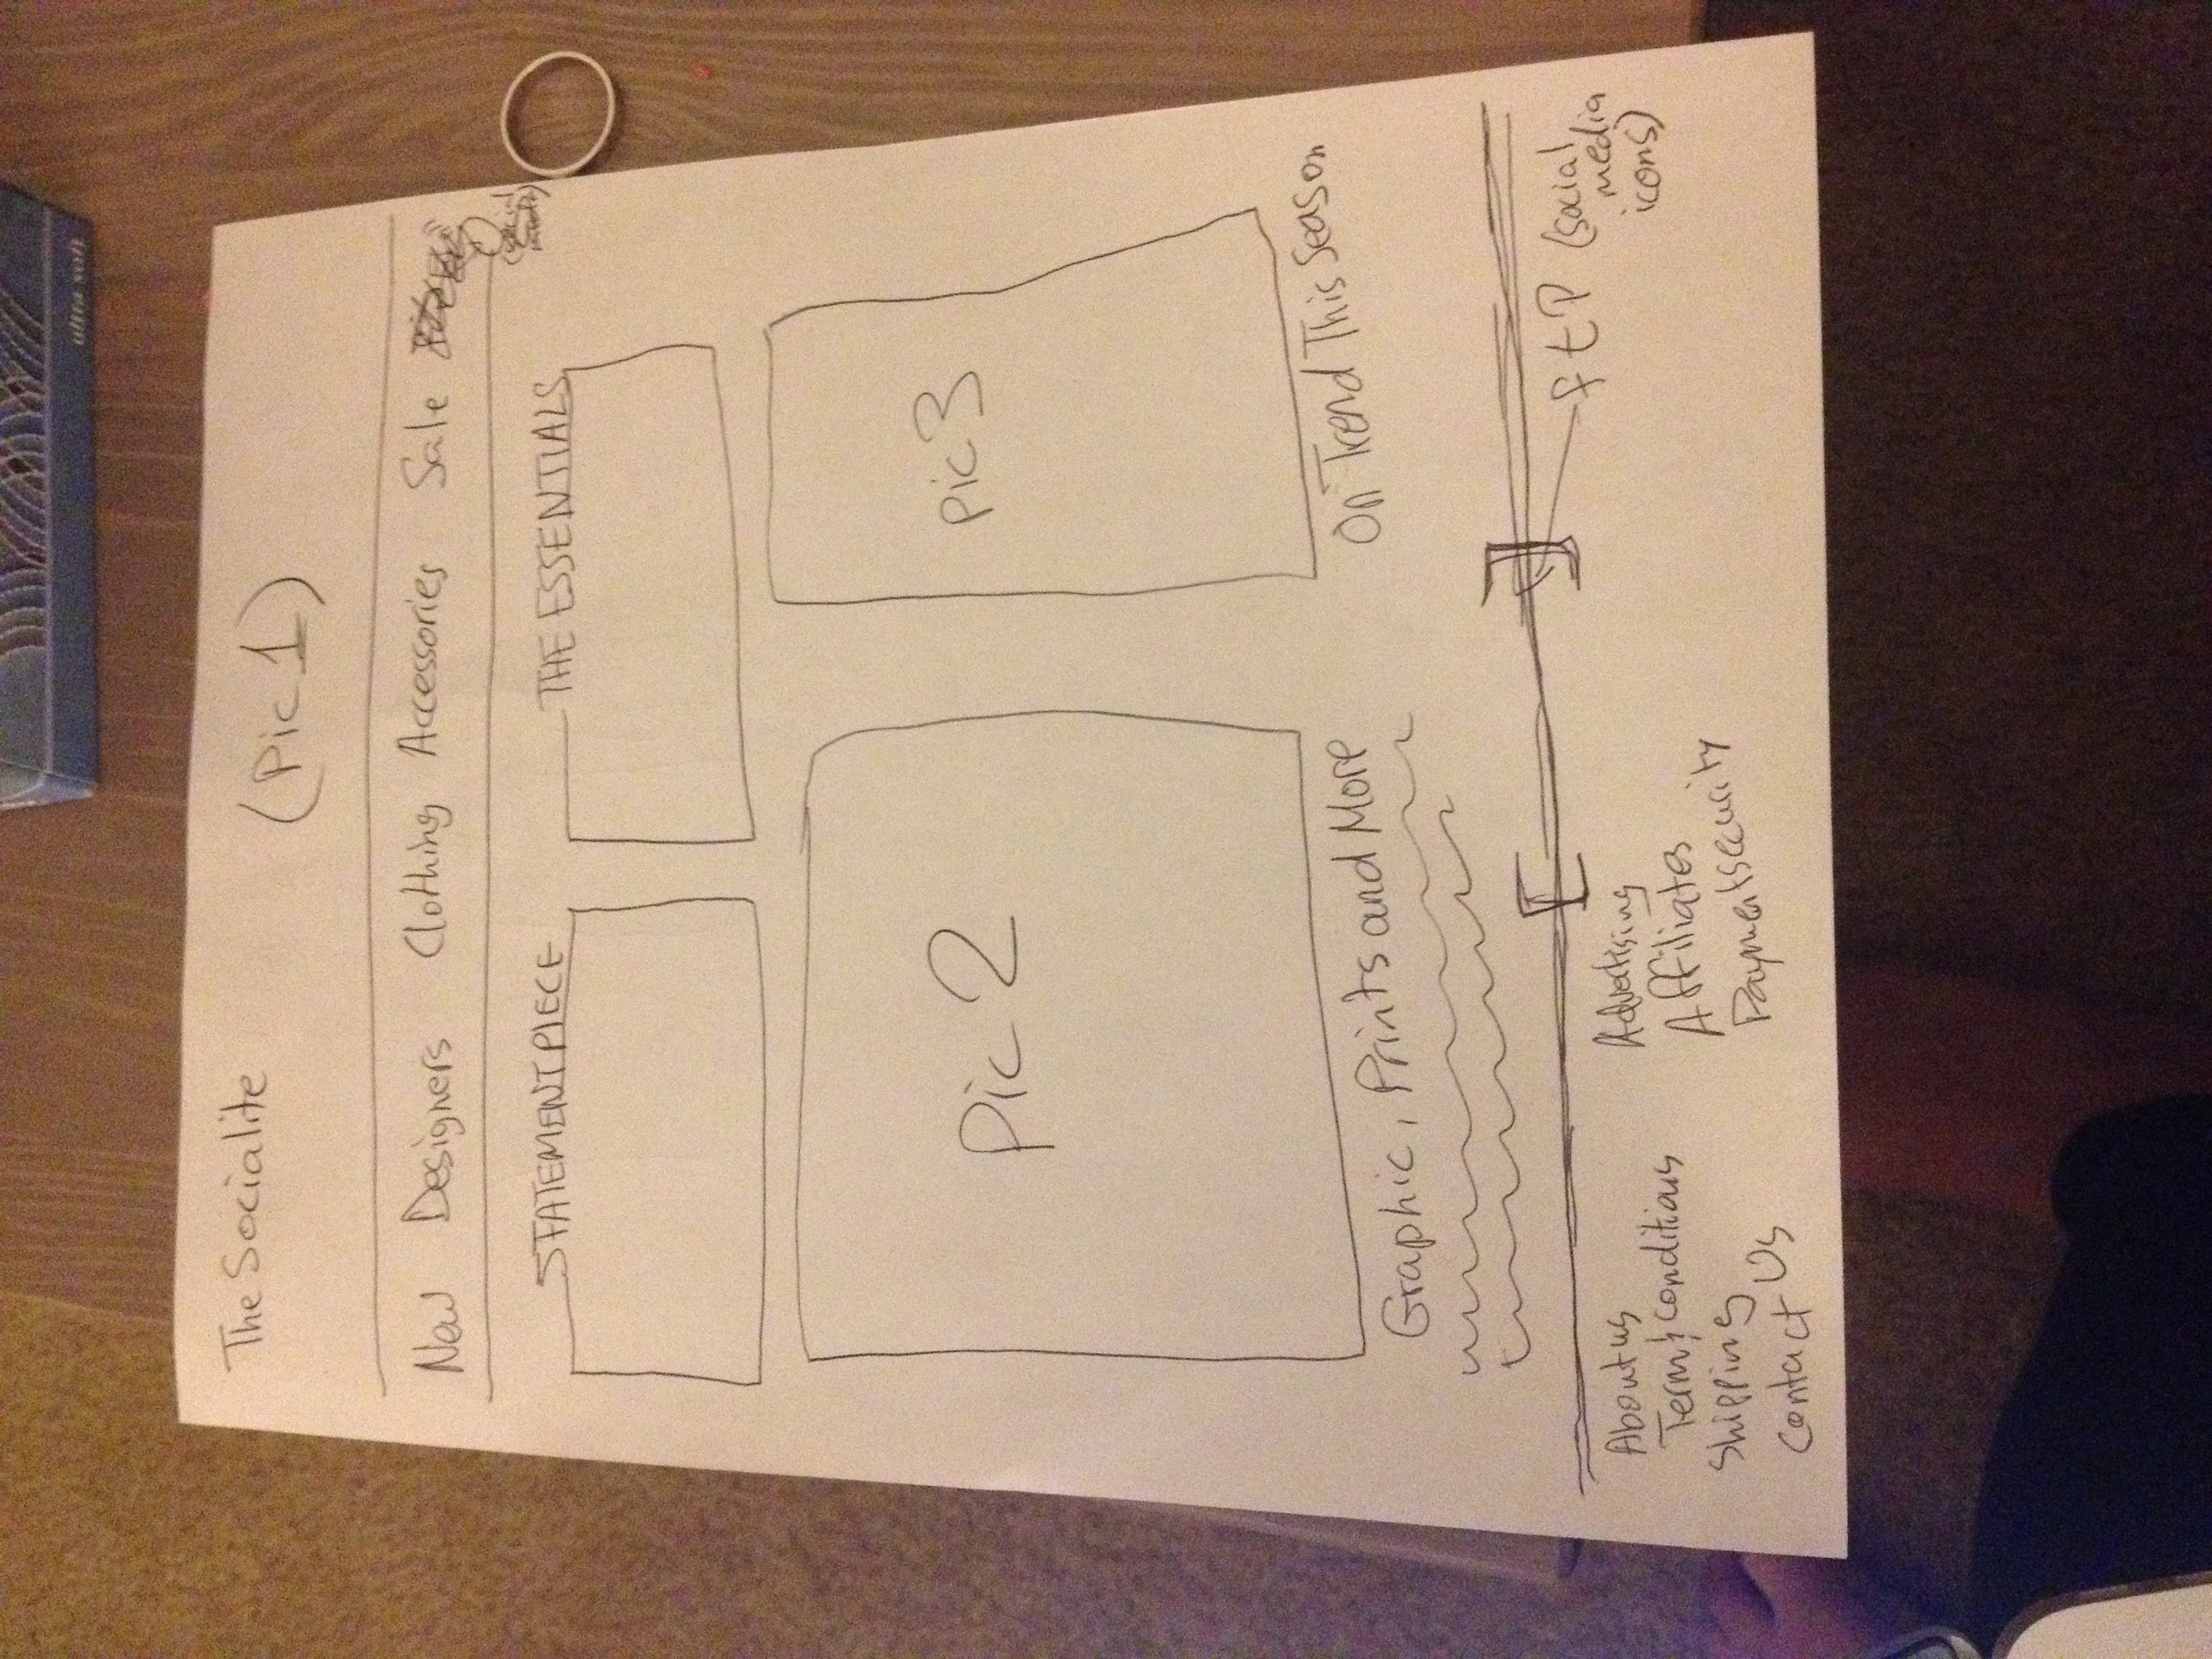 ultra soft
The Socialite
(Pic 1)
New Designers Clothing Accessories Sale
STATEMENT PIECE
THE ESSENTIALS
Pic 2
pic 3
Graphic, Prints and More
On Trend This Season
f t P (social media icons)
About us
Term & conditions
Shipping
Contact Us
Advertising
Affiliates
Payment security